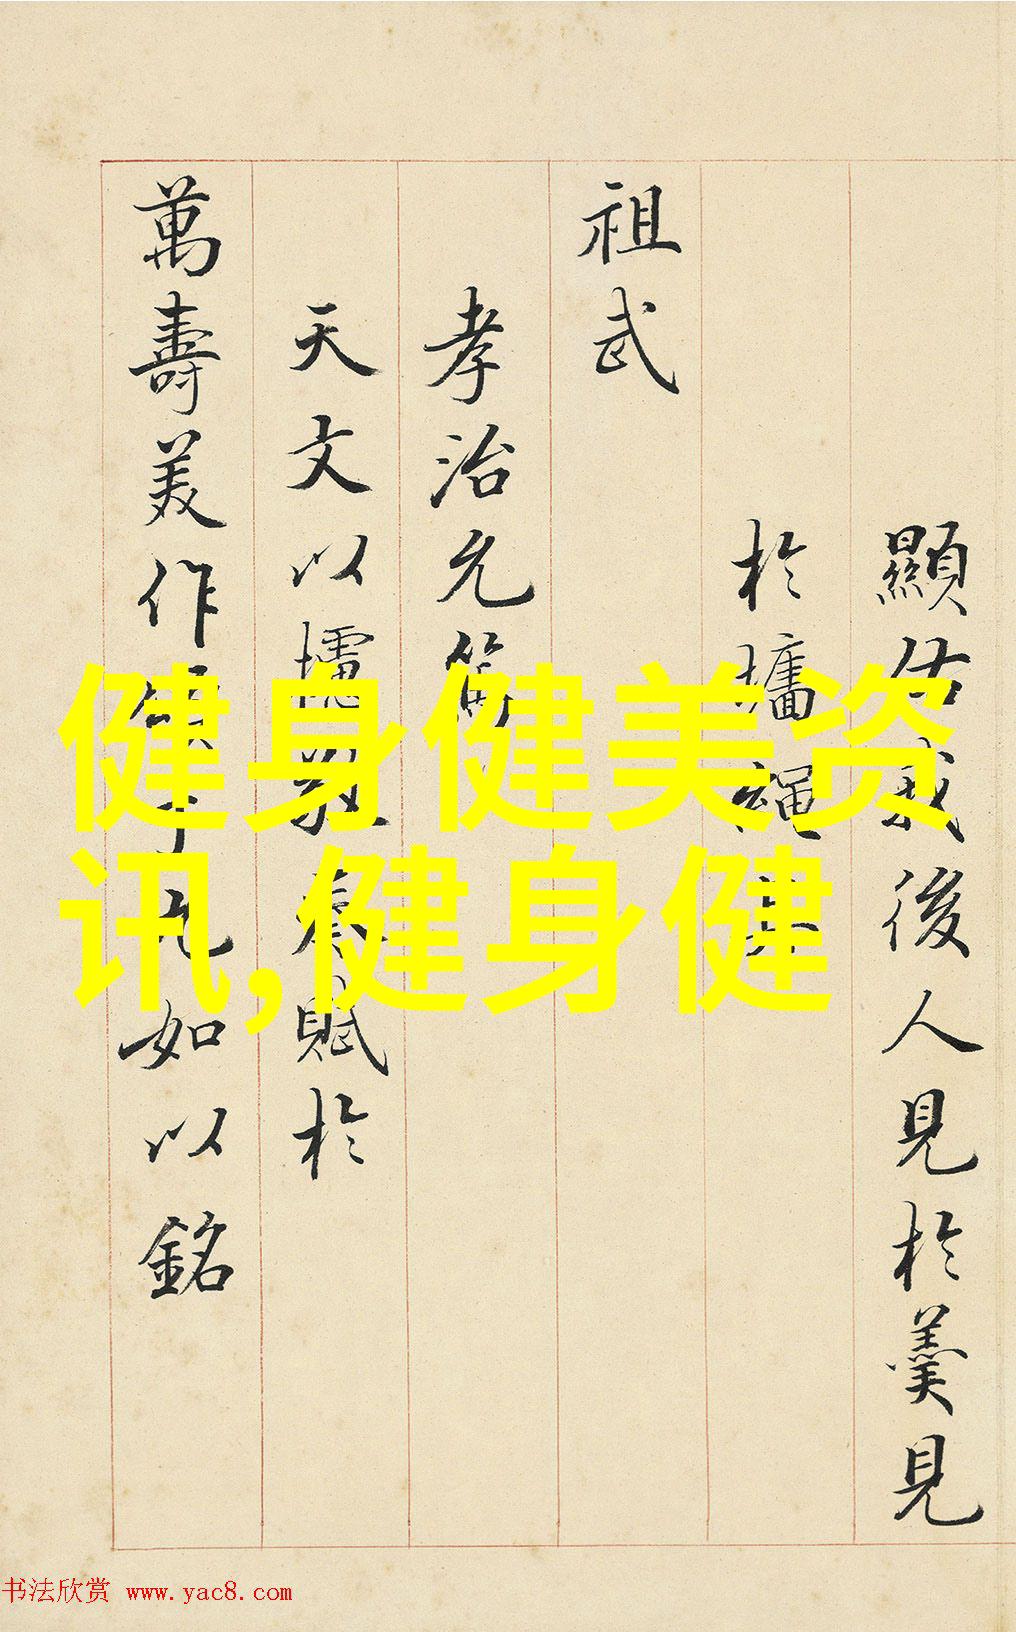 顯佑我後人見於羹見
於墻繩其
祖武
孝治允
天文以攄賦於
萬壽美作九如以銘
健身健美资
讯,健身健
书法欣赏 www.yac8.com